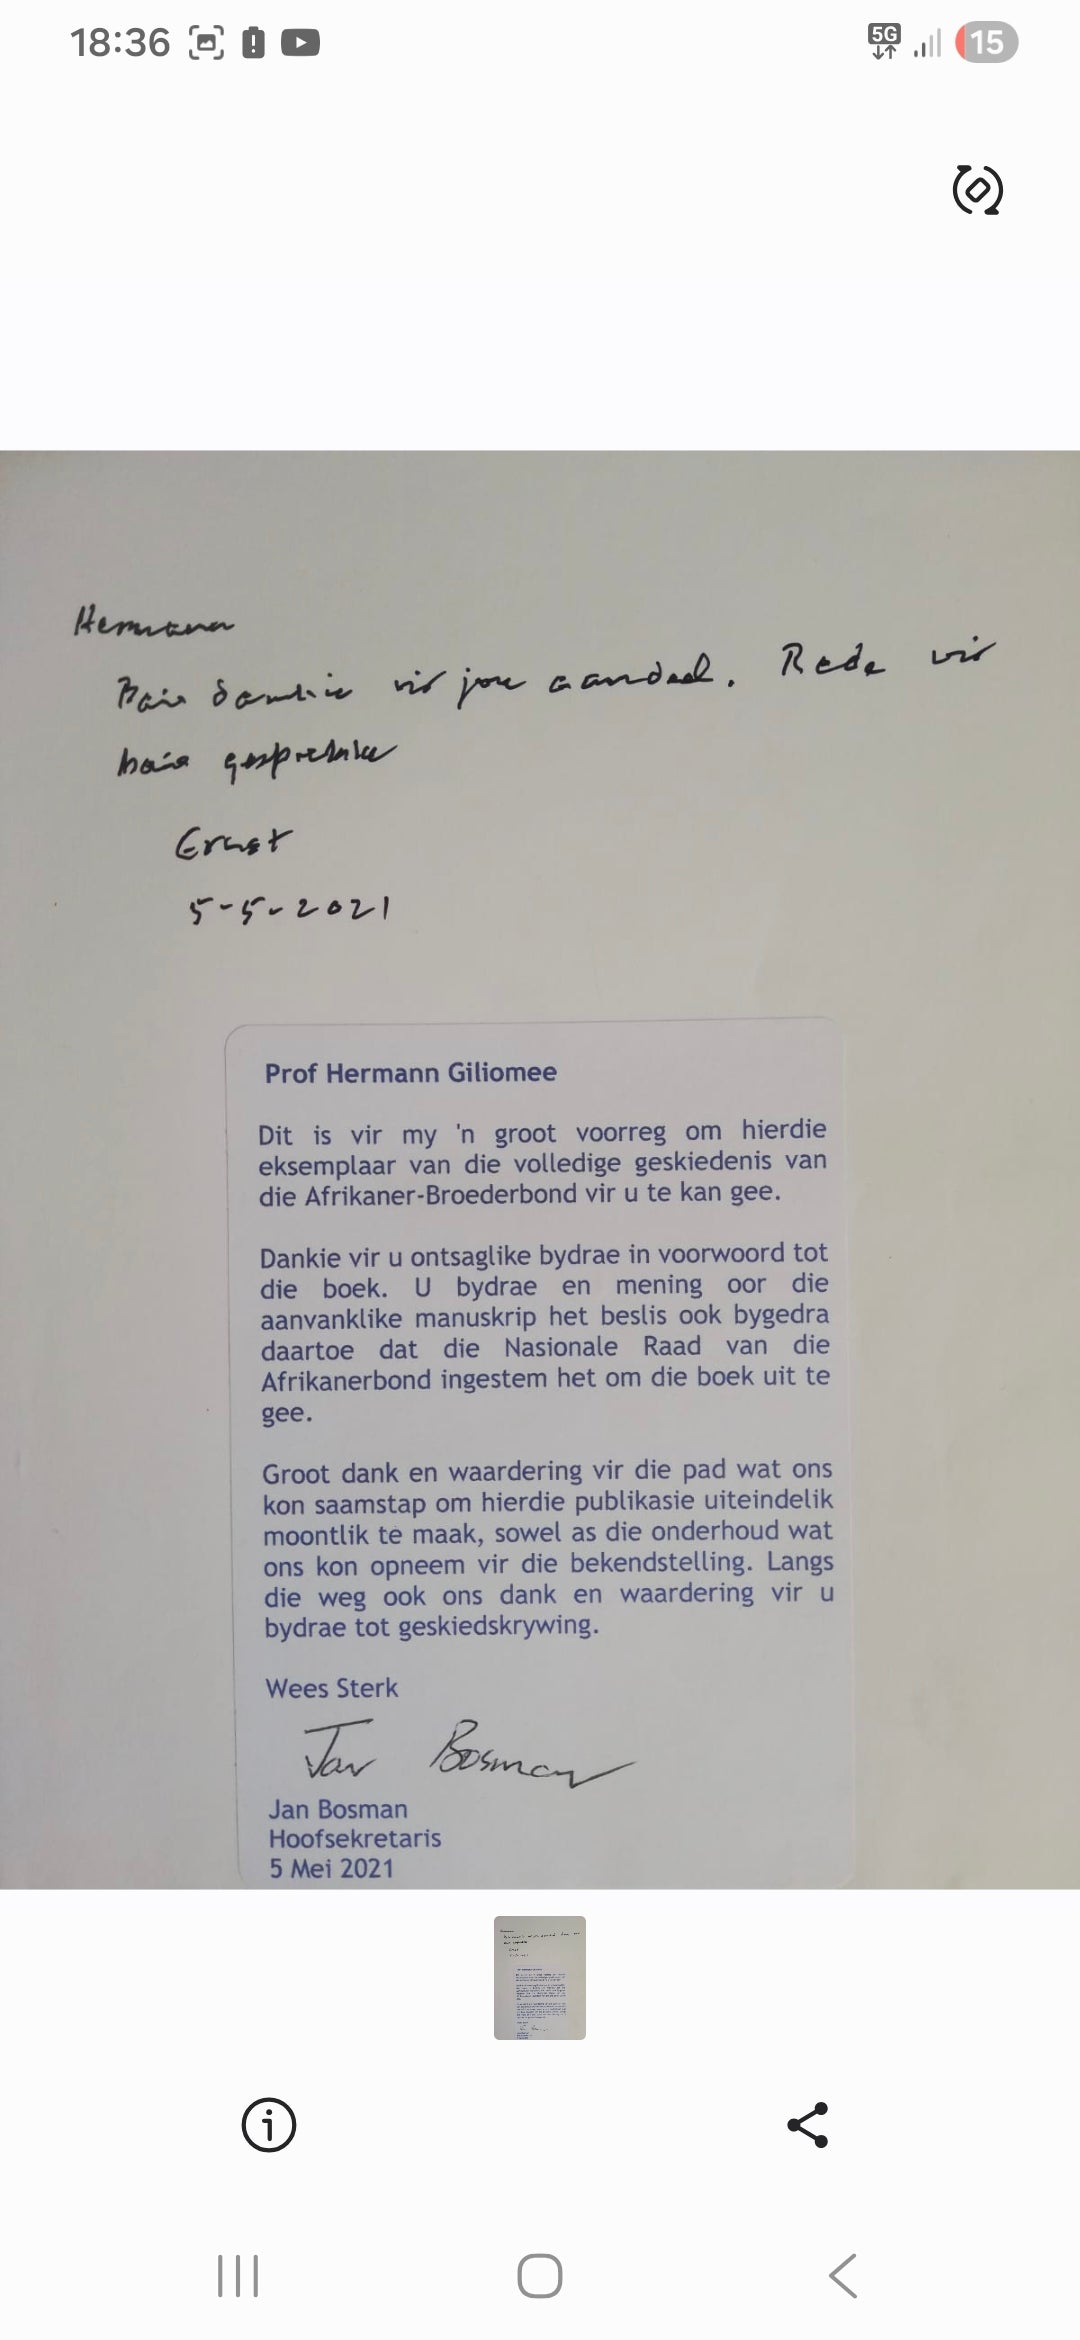 18:36
5G
15
Hermann
Baie dankie vir jou aandeel. Rede vir
baie gesprekke
Ernst
5-5-2021
Prof Hermann Giliomee
Dit is vir my 'n groot voorreg om hierdie
eksemplaar van die volledige geskiedenis van
die Afrikaner-Broederbond vir u te kan gee.
Dankie vir u ontsaglike bydrae in voorwoord tot
die boek. U bydrae en mening oor die
aanvanklike manuskrip het beslis ook bygedra
daartoe dat die Nasionale Raad van die
Afrikanerbond ingestem het om die boek uit te
gee.
Groot dank en waardering vir die pad wat ons
kon saamstap om hierdie publikasie uiteindelik
moontlik te maak, sowel as die onderhoud wat
ons kon opneem vir die bekendstelling. Langs
die weg ook ons dank en waardering vir u
bydrae tot geskiedskrywing.
Wees Sterk
Jan Bosman
Jan Bosman
Hoofsekretaris
5 Mei 2021